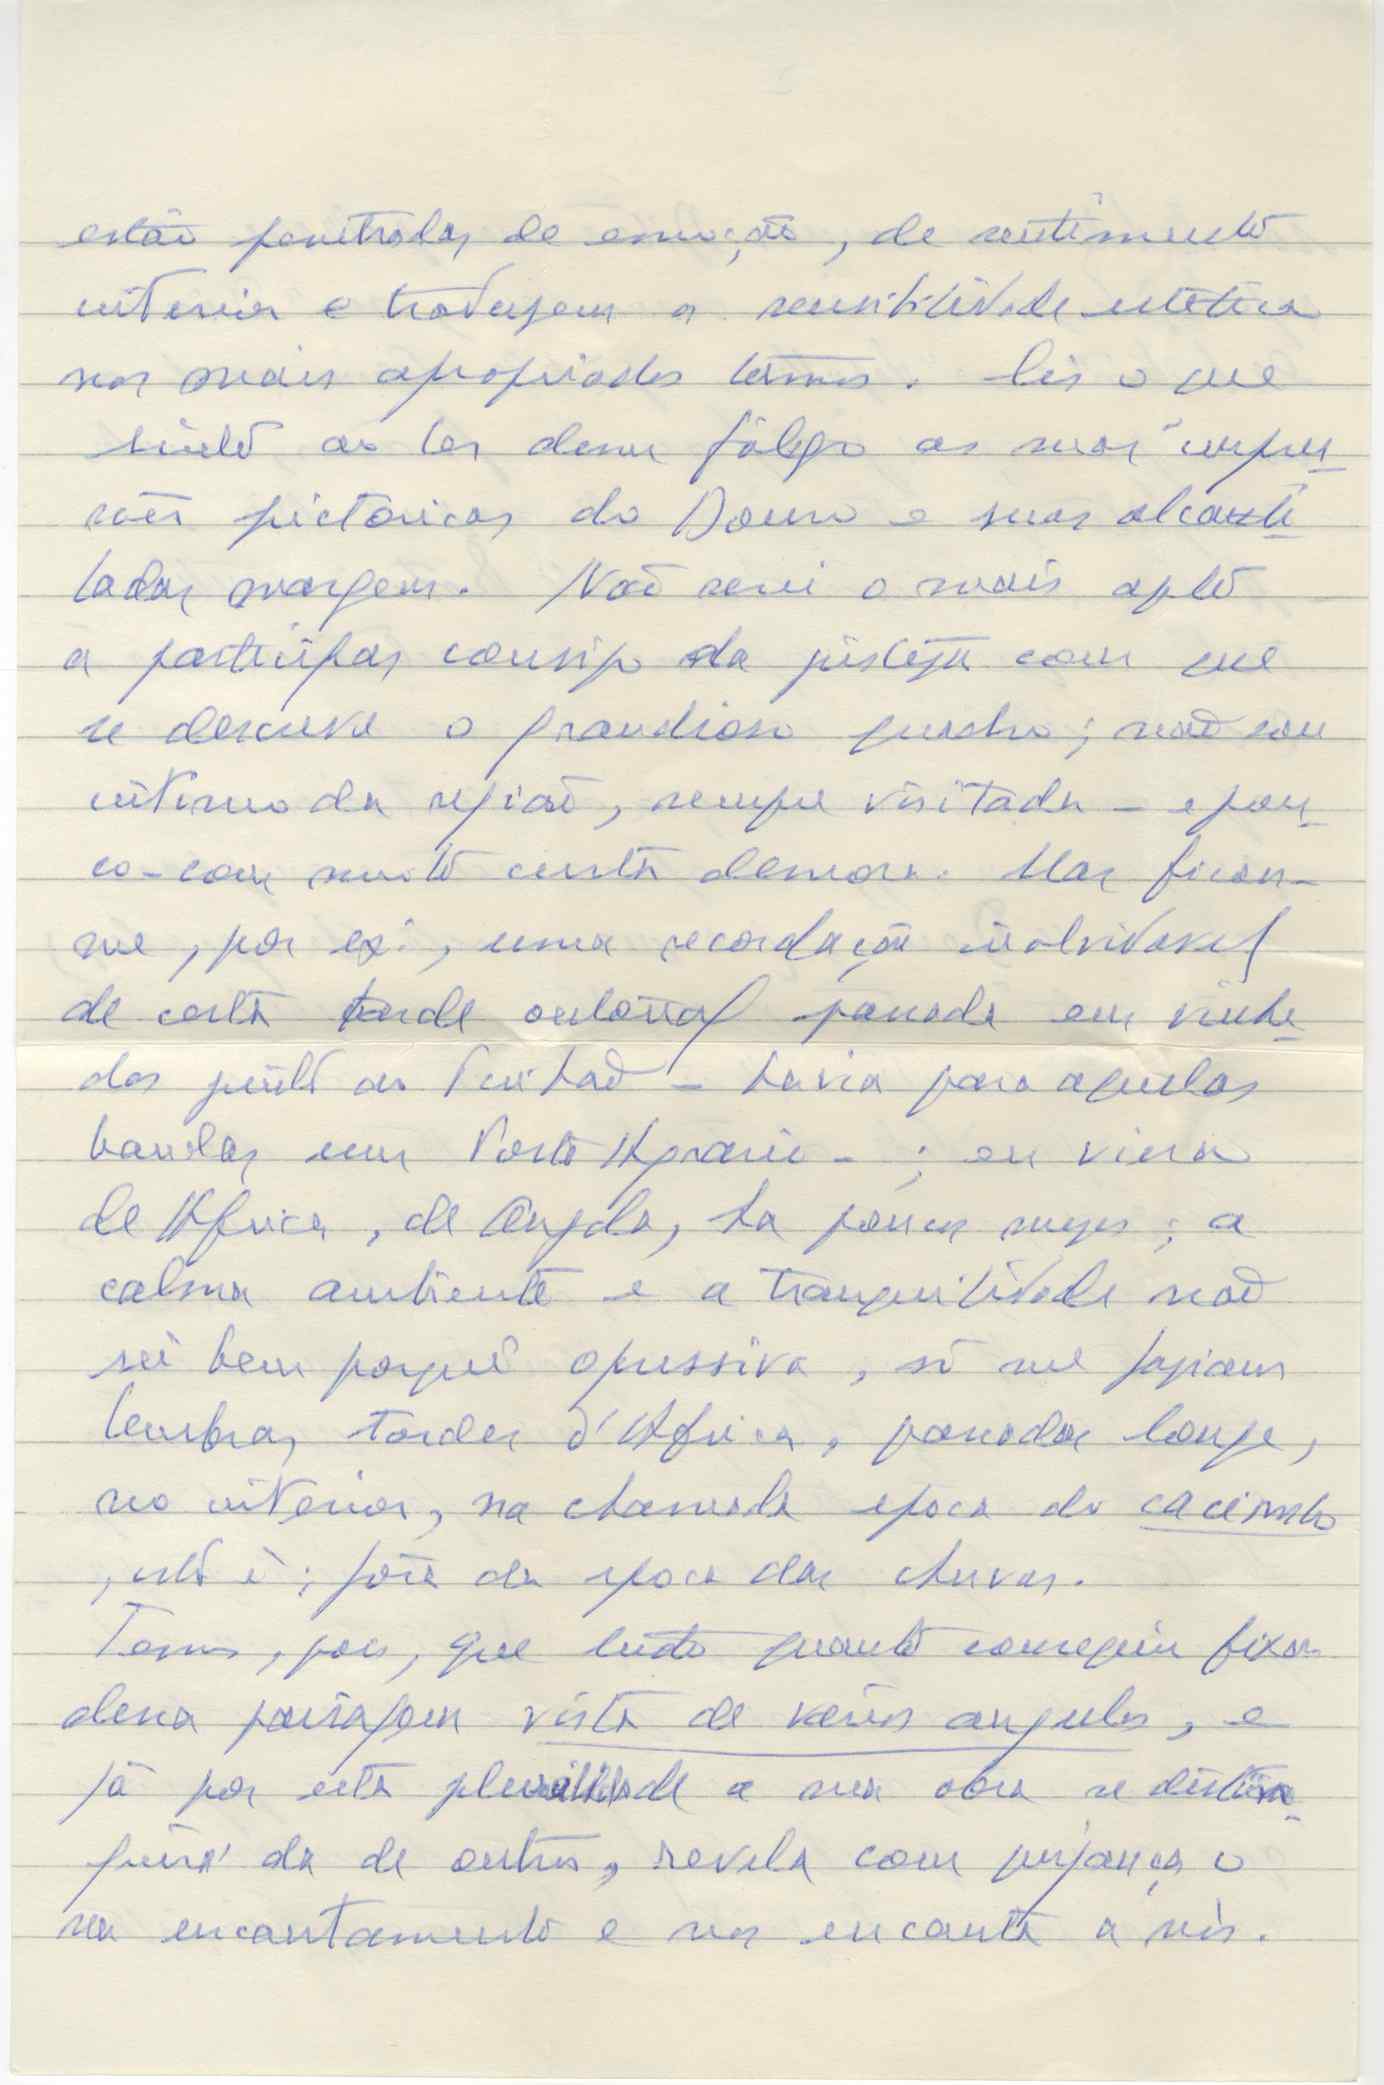 estão penetradas de emoção, de sentimento
interior e traduzem a sensibilidade estética
nos mais apropriados termos. Eis o que
sinto ao ler dum fôlego as suas impres-
sões pictóricas do Douro e suas alcanti-
ladas margens. Não serei o mais apto
a participar consigo da justeza com que
se descreve o grandioso quadro; não sou
intimo da região, sempre visitada – e pou-
co – com muito curta demora. Mas ficou-
me, por ex:, uma recordação inolvidavel
de certa tarde outonal passada em vinhe-
dos junto ao Pinhão – havia para aquelas
bandas um Posto Agrario – ; eu viera
de Africa, de Angola, ha poucos mezes; a
calma ambiente e a tranquilidade não
sei bem porquê opressiva, só me faziam
lembrar tardes d'Africa, passadas longe,
no interior, na chamada epoca do cacimbo
, isto é; fóra da epoca das chuvas.
Temos, pois, que tudo quanto conseguiu fixar
dessa paisagem vista de vários angulos, e
já por esta pluralidade a sua obra se distin-
guirá da de outros, revela com pujança o
seu encantamento e nos encanta a nós.